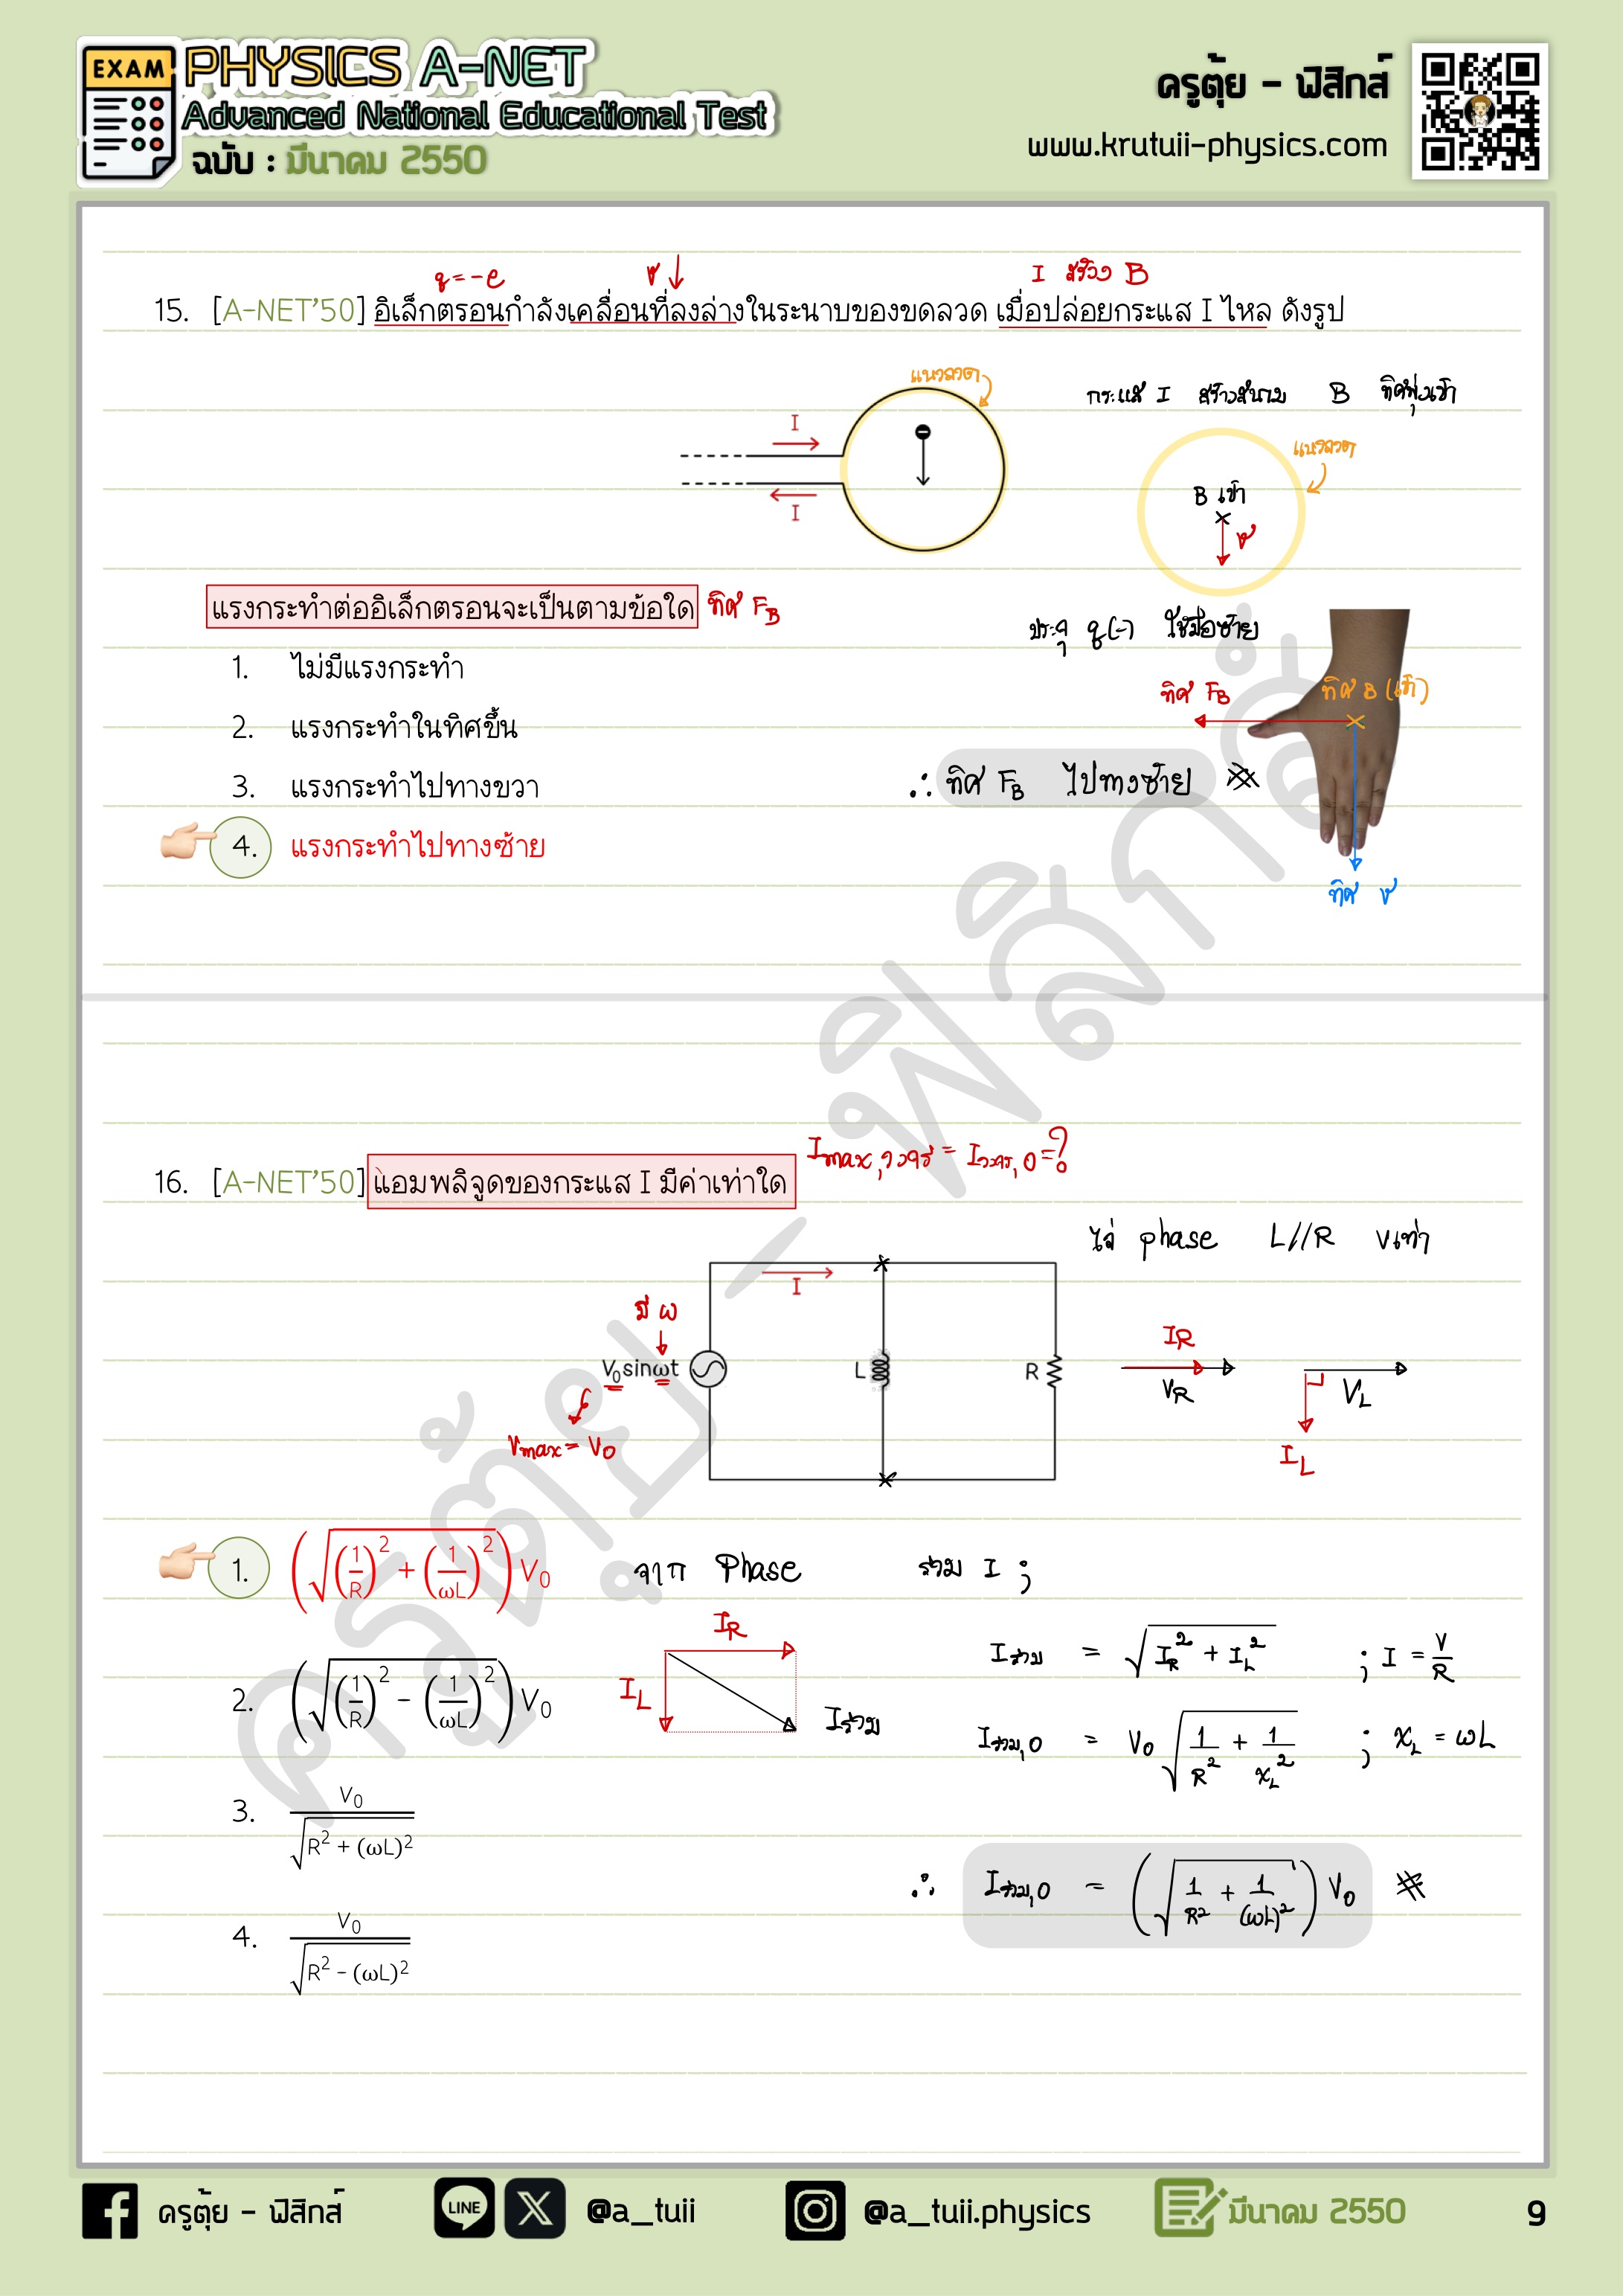 EXAM
PHYSICS A-NET
Advanced National Educational Test
ฉบับ : มีนาคม 2550
ครูตุ้ย - ฟิสิกส์
www.krutuii-physics.com
q = -e
v ↓
I สร้าง B
15. [A-NET'50] อิเล็กตรอนกำลังเคลื่อนที่ลงล่างในระนาบของขดลวด เมื่อปล่อยกระแส I ไหล ดังรูป
แนวลวด
I
I
กระแส I สร้างสนาม B ทิศพุ่งเข้า
แนวลวด
B เข้า
v
แรงกระทำต่ออิเล็กตรอนจะเป็นตามข้อใด ทิศ F_B
1. ไม่มีแรงกระทำ
2. แรงกระทำในทิศขึ้น
3. แรงกระทำไปทางขวา
4. แรงกระทำไปทางซ้าย
ประจุ q(-) ใช้มือซ้าย
ทิศ F_B
ทิศ B (เข้า)
∴ ทิศ F_B ไปทางซ้าย
ทิศ v
ครูตุ้ย - ฟิสิกส์
16. [A-NET'50] แอมพลิจูดของกระแส I มีค่าเท่าใด
I_max,วงจร = I_วงจร,0 = ?
ไล่ phase L//R V เท่า
I
มี ω
V₀sinωt
V_max = V₀
L
R
I_R
V_R
V_L
I_L
1. (√((1/R)² + (1/ωL)²)) V₀
2. (√((1/R)² - (1/ωL)²)) V₀
3. V₀/√(R² + (ωL)²)
4. V₀/√(R² - (ωL)²)
จาก Phase รวม I ;
I_R
I_L
I รวม
I รวม = √(I_R² + I_L²) ; I = V/R
I รวม,0 = V₀ √(1/R² + 1/X_L²) ; X_L = ωL
∴ I รวม,0 = (√(1/R² + 1/(ωL)²)) V₀
ครูตุ้ย - ฟิสิกส์
LINE
@a_tuii
@a_tuii.physics
มีนาคม 2550
9